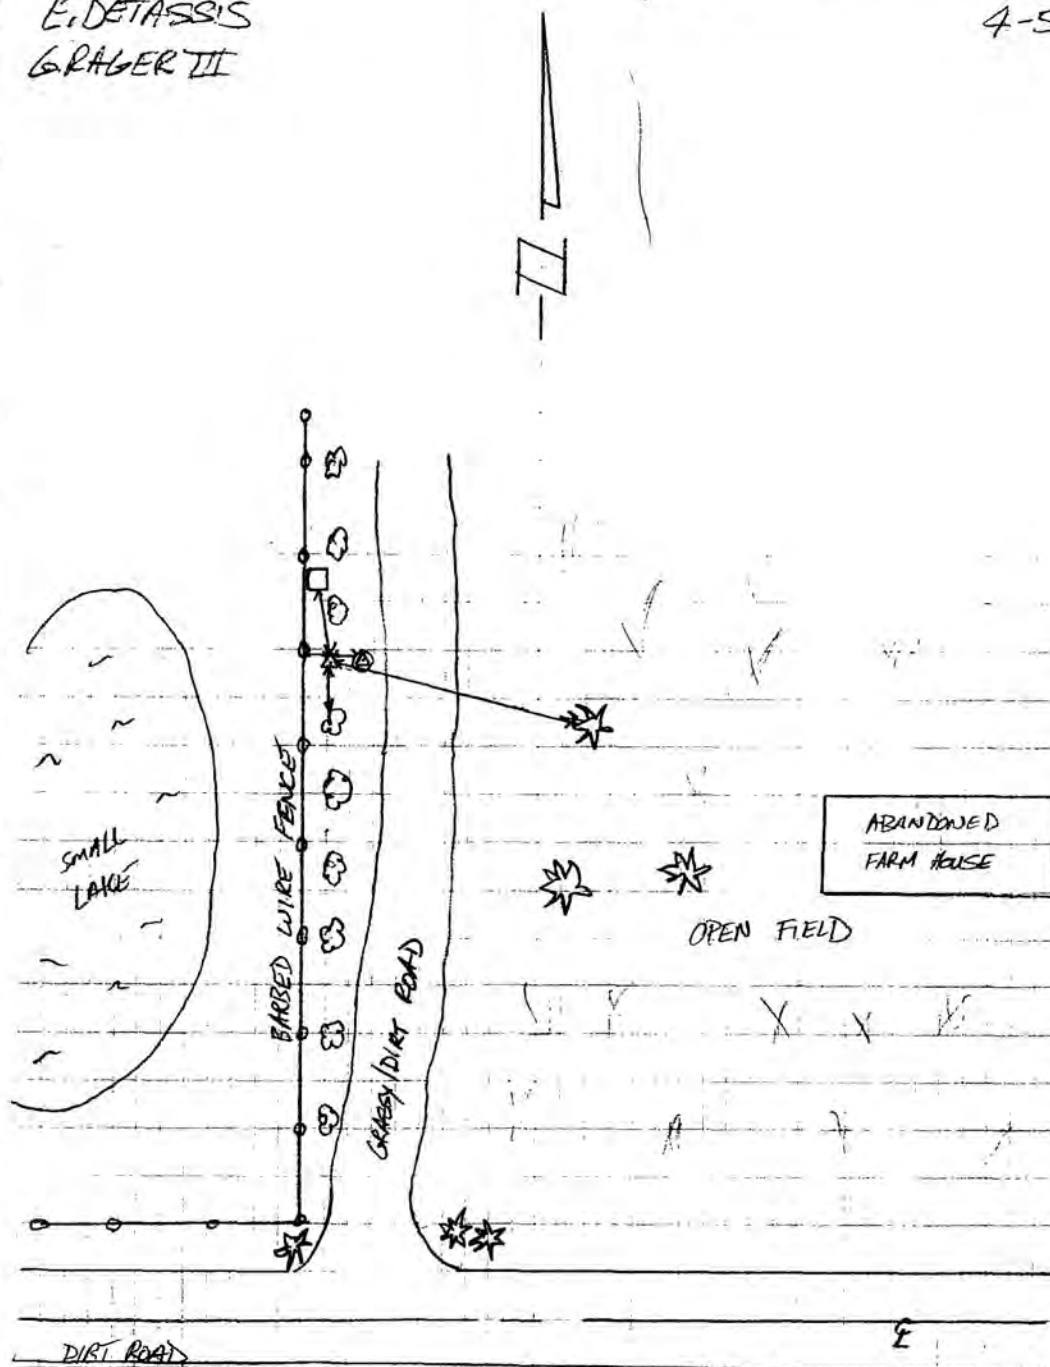 E. DETASSIS
GRAGER III
4-5
N
BARBED WIRE FENCE
SMALL
LAKE
GRASSY/DIRT ROAD
ABANDONED
FARM HOUSE
OPEN FIELD
DIRT ROAD
℄